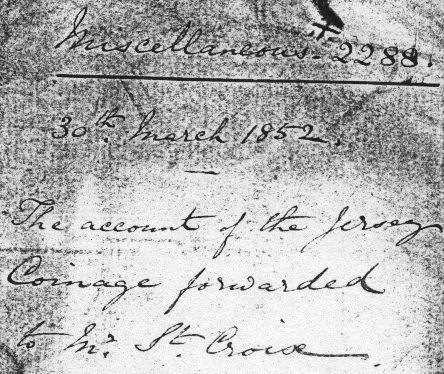 Miscellaneous. 2288.
30th March 1852.
The account of the Jersey
Coinage forwarded
to Mr. St. Croix